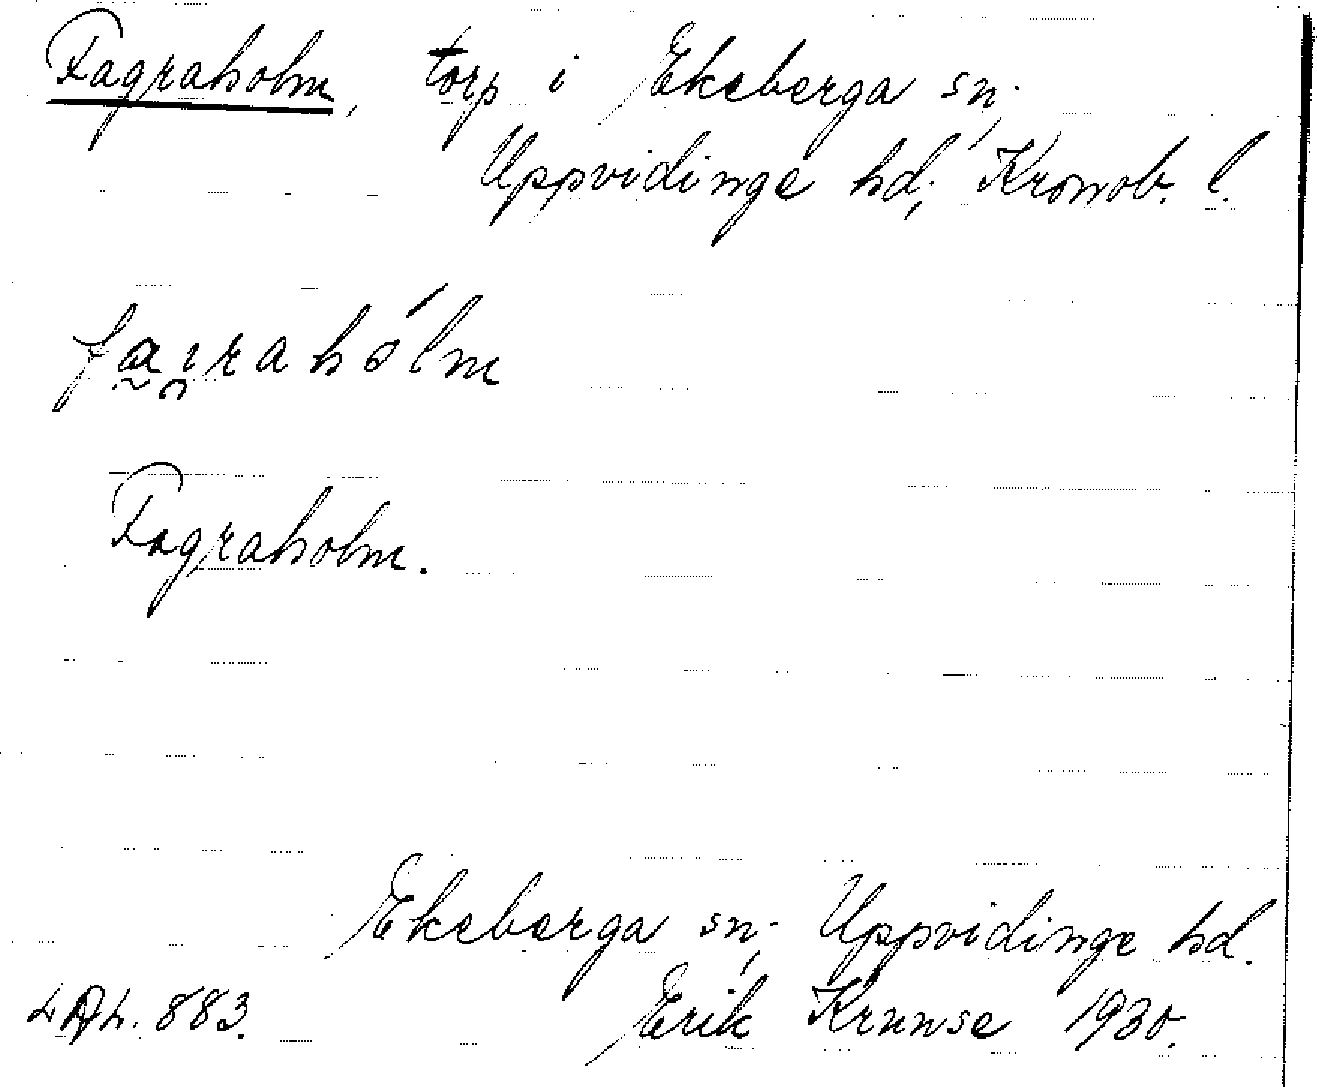 Fagraholm, torp i Ekeberga sn.,
Uppvidinge hd., Kronob. l.
Fagraholm.
Ekeberga sn., Uppvidinge hd.
LAL. 883. Erik Krunse 1930.